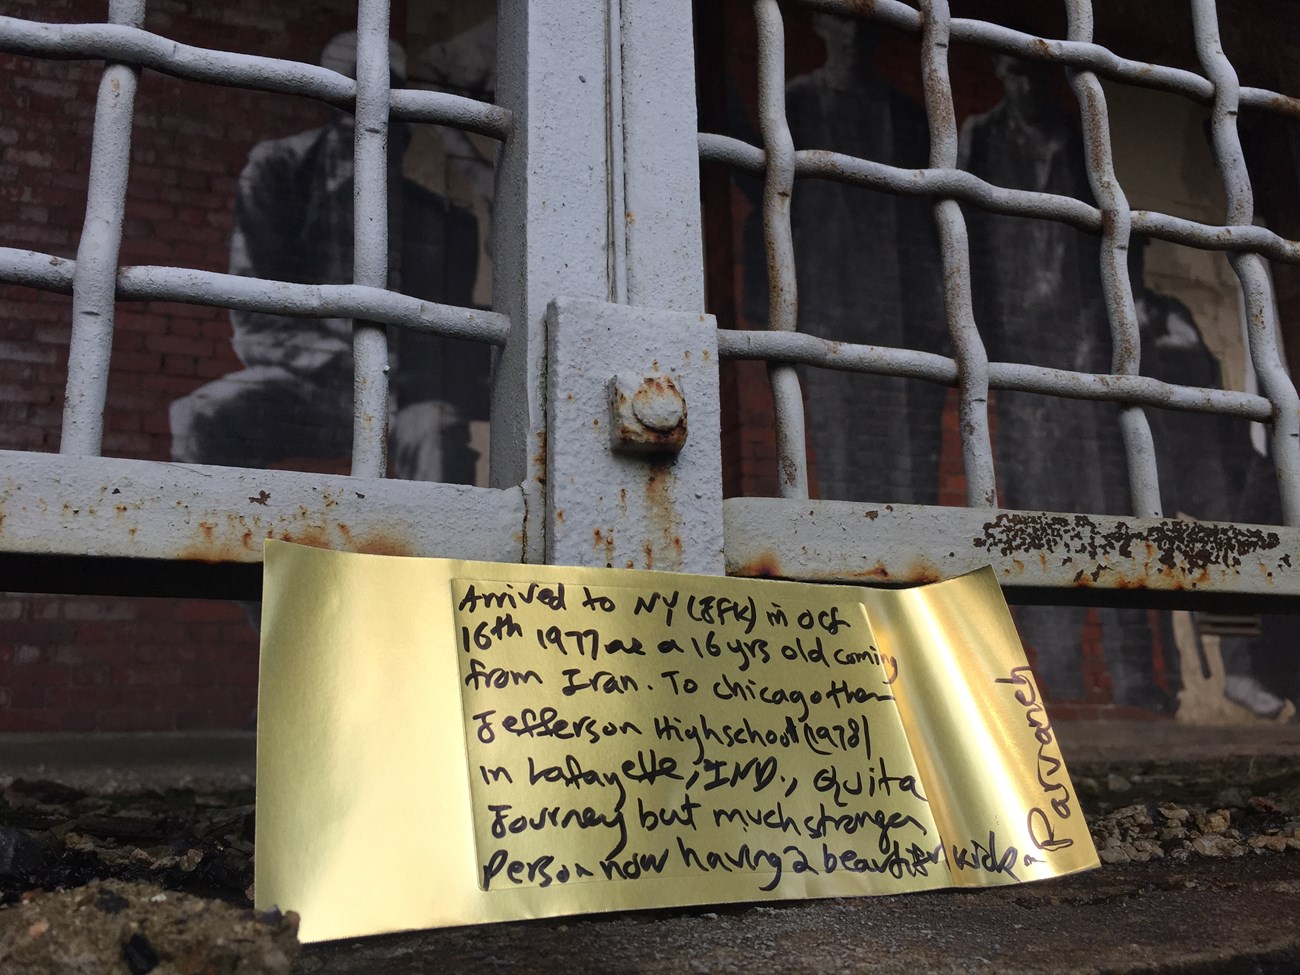 Arrived to NY (JFK) in Oct
16th 1977 as a 16 yrs old coming
from Iran. To chicago then
Jefferson Highschool (1978)
in Lafayette, IND., Quita
Journey but much stronger
Person now having 2 beautiful kids
Parvaneh